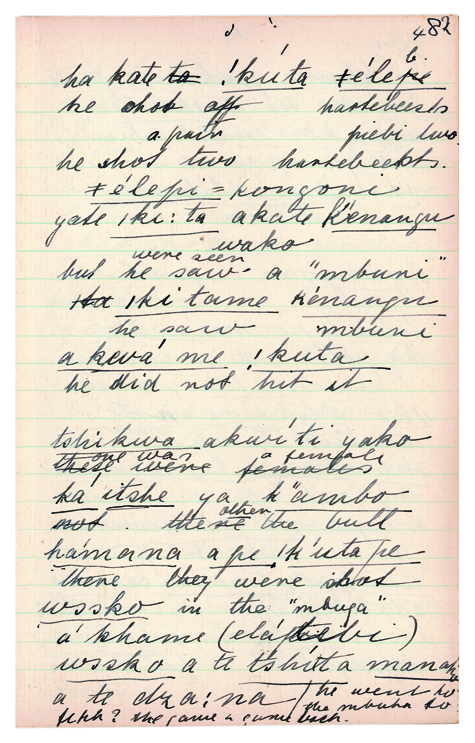 482
ha kate ta !kúta ǂélepe bi
he shot off hartebeests
again piebi two
he shot two hartebeests.
ǂélepi = kongoni
yate iki:ta akate Kénangu
wako
were seen
but he saw a "mbuni"
iki tame Kénangu
he saw mbuni
a kwá me !kuta
he did not hit it
tshikwa akwíti yako
one was a female
these were females
ká itshe ya k"ambo
other
not. there the bull
hámana a pe !k'uta pe
there they were shot
wssko in the "mbuga"
á khame (elá bi)
wssko a te tshíta mana
a te dza:na / he went to
the mbuba to
fetch? the game a game back.